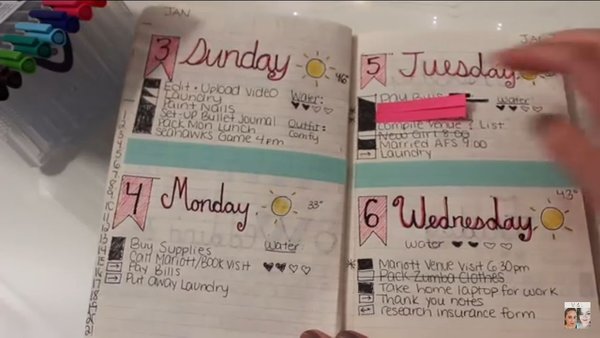 JAN
3 Sunday
46°
Edit + Upload Video
Laundry
Paint Nails
Set-up Bullet Journal
Pack Mon Lunch
Seahawks Game 4pm
Water:
Outfit:
comfy
4 Monday
33°
Buy Supplies
Call Mariott/Book Visit
Pay Bills
Put away Laundry
Water
JAN
5 Tuesday
Pay Bills
Water
Compile Venue ? List
New Girl 8:00
Married AFS 9:00
Laundry
6 Wednesday
43°
water
Mariott Venue Visit 6:30pm
Pack Zumba Clothes
Take home laptop for work
Thank you notes
research insurance form